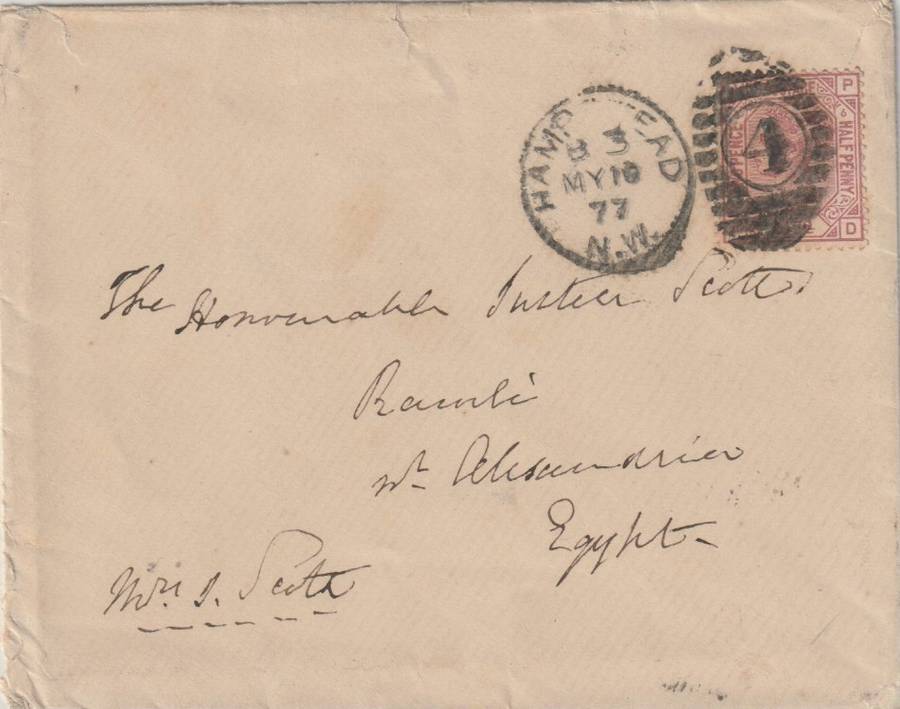 HAMP EAD
B 3
MY 10
77
N.W.
1
P
PENCE
HALFPENNY
D
The Honourable Justice Scott
Ramli
nr Alexandria
Egypt
Mrs. J. Scott